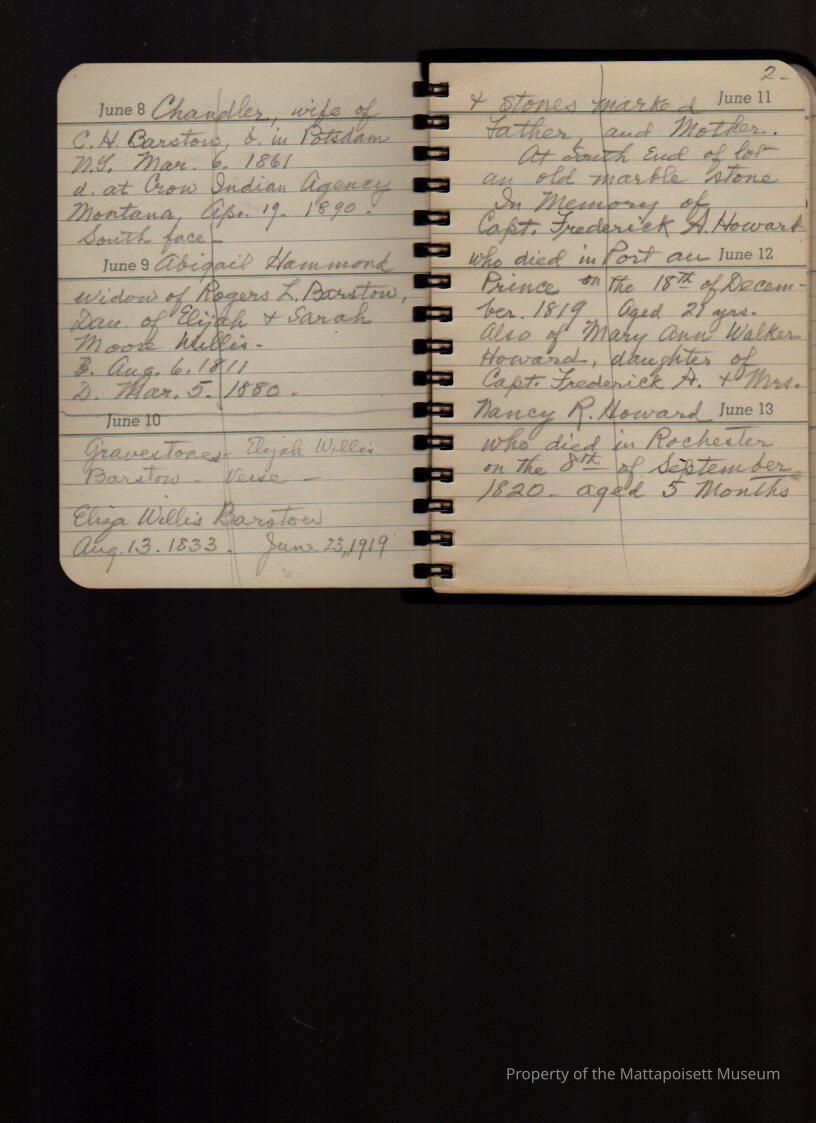 June 8 Chandler, wife of
C. H. Barstow, b. in Potsdam
N.Y. Mar. 6. 1861
d. at Crow Indian Agency
Montana, Apr. 19. 1890.
South face -
June 9 Abigail Hammond
widow of Rogers L. Barstow,
Dau. of Elijah & Sarah
Moore Willis -
B. Aug. 6. 1811
D. Mar. 5. 1880 -
June 10
Gravestones - Elijah Willis
Barstow - Verse -
Eliza Willis Barstow
Aug. 13. 1833. June 23, 1919
2 -
& stones marked June 11
Father, and Mother.
At South End of lot
an old marble stone
In Memory of
Capt. Frederick A. Howard
who died in Port au June 12
Prince on the 18th of Decem-
ber. 1819 Aged 28 yrs.
Also of Mary Ann Walker
Howard, daughter of
Capt. Frederick A. & Mrs.
Nancy R. Howard June 13
who died in Rochester
on the 8th of September
1820 - aged 5 Months
Property of the Mattapoisett Museum